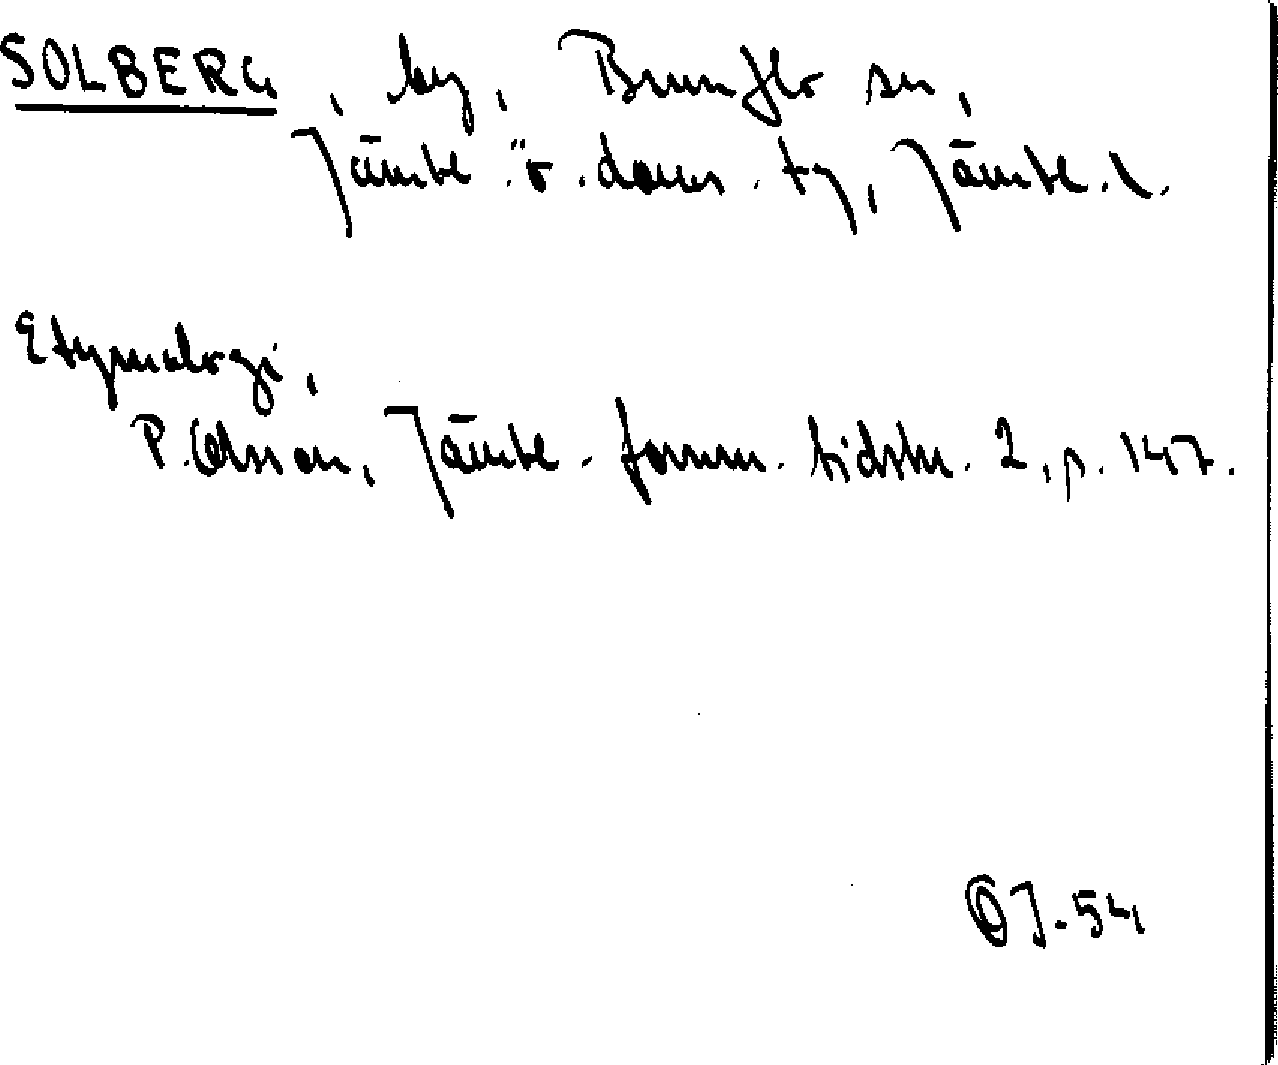 SOLBERG, by, Brunflo sn,
Jämtl. ö. doms. tg, Jämtl. l.
Etymologi,
P. Olsson, Jämtl. fornm. tidskr. 2, p. 147.
OJ-54